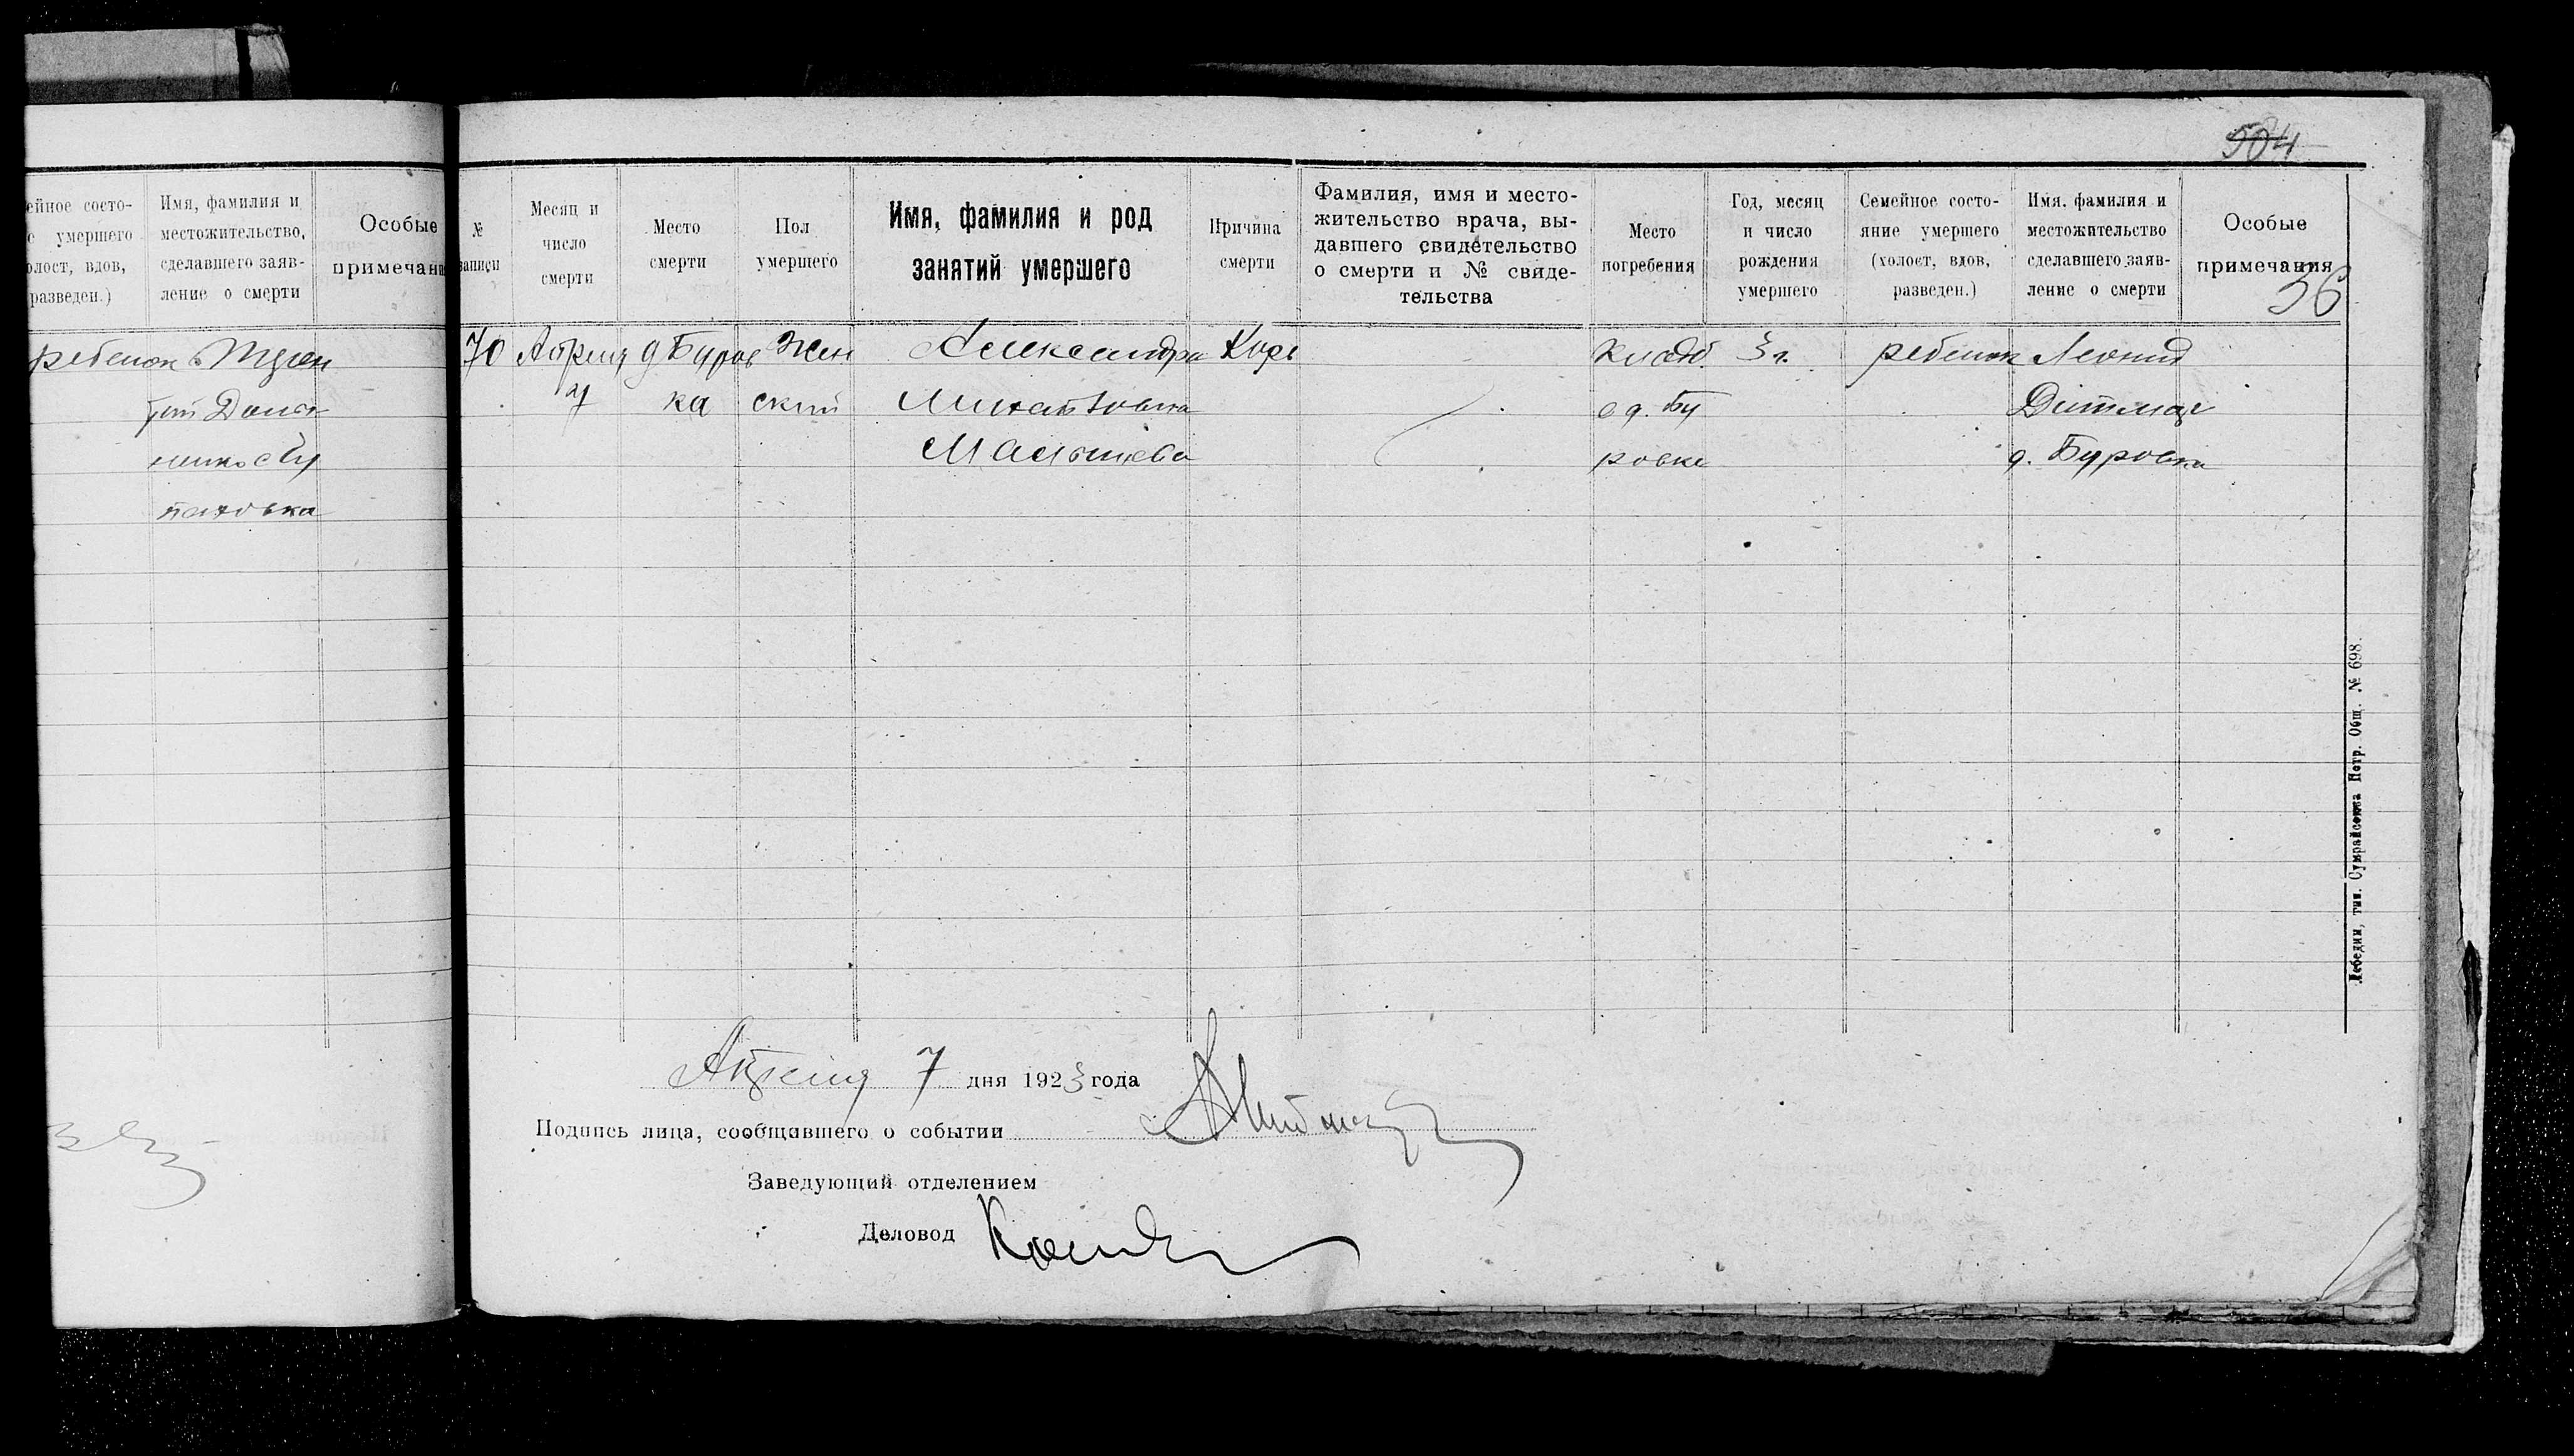 504
ейное состо-
е умершего
олост, вдов,
разведен.)
Имя, фамилия и
местожительство,
сделавшего заяв-
ление о смерти
Особые
примечани
ребенок
№
записи
Месяц и
число
смерти
Место
смерти
Пол
умершего
Имя, фамилия и род
занятий умершего
Причина
смерти
Фамилия, имя и место-
жительство врача, вы-
давшего свидетельство
о смерти и № свиде-
тельства
Место
погребения
Год, месяц
и число
рождения
умершего
Семейное состо-
яние умершего
(холост, вдов,
разведен.)
Имя, фамилия и
местожительство
сделавшего заяв-
ление о смерти
Особые
примечания
36
70 Апреля д Буров Жен Александра Корь кладб. 3 г. ребенок Леонид
7 ка ский Михайловна е д. Бу Дитмар
Малышева ровке д. Буровка
Апреля 7 дня 1923 года
Подпись лица, сообщившего о событии
Заведующий отделением
Деловод
Лебедин, тип. Сумрайсоюза Потр. Общ. № 698.